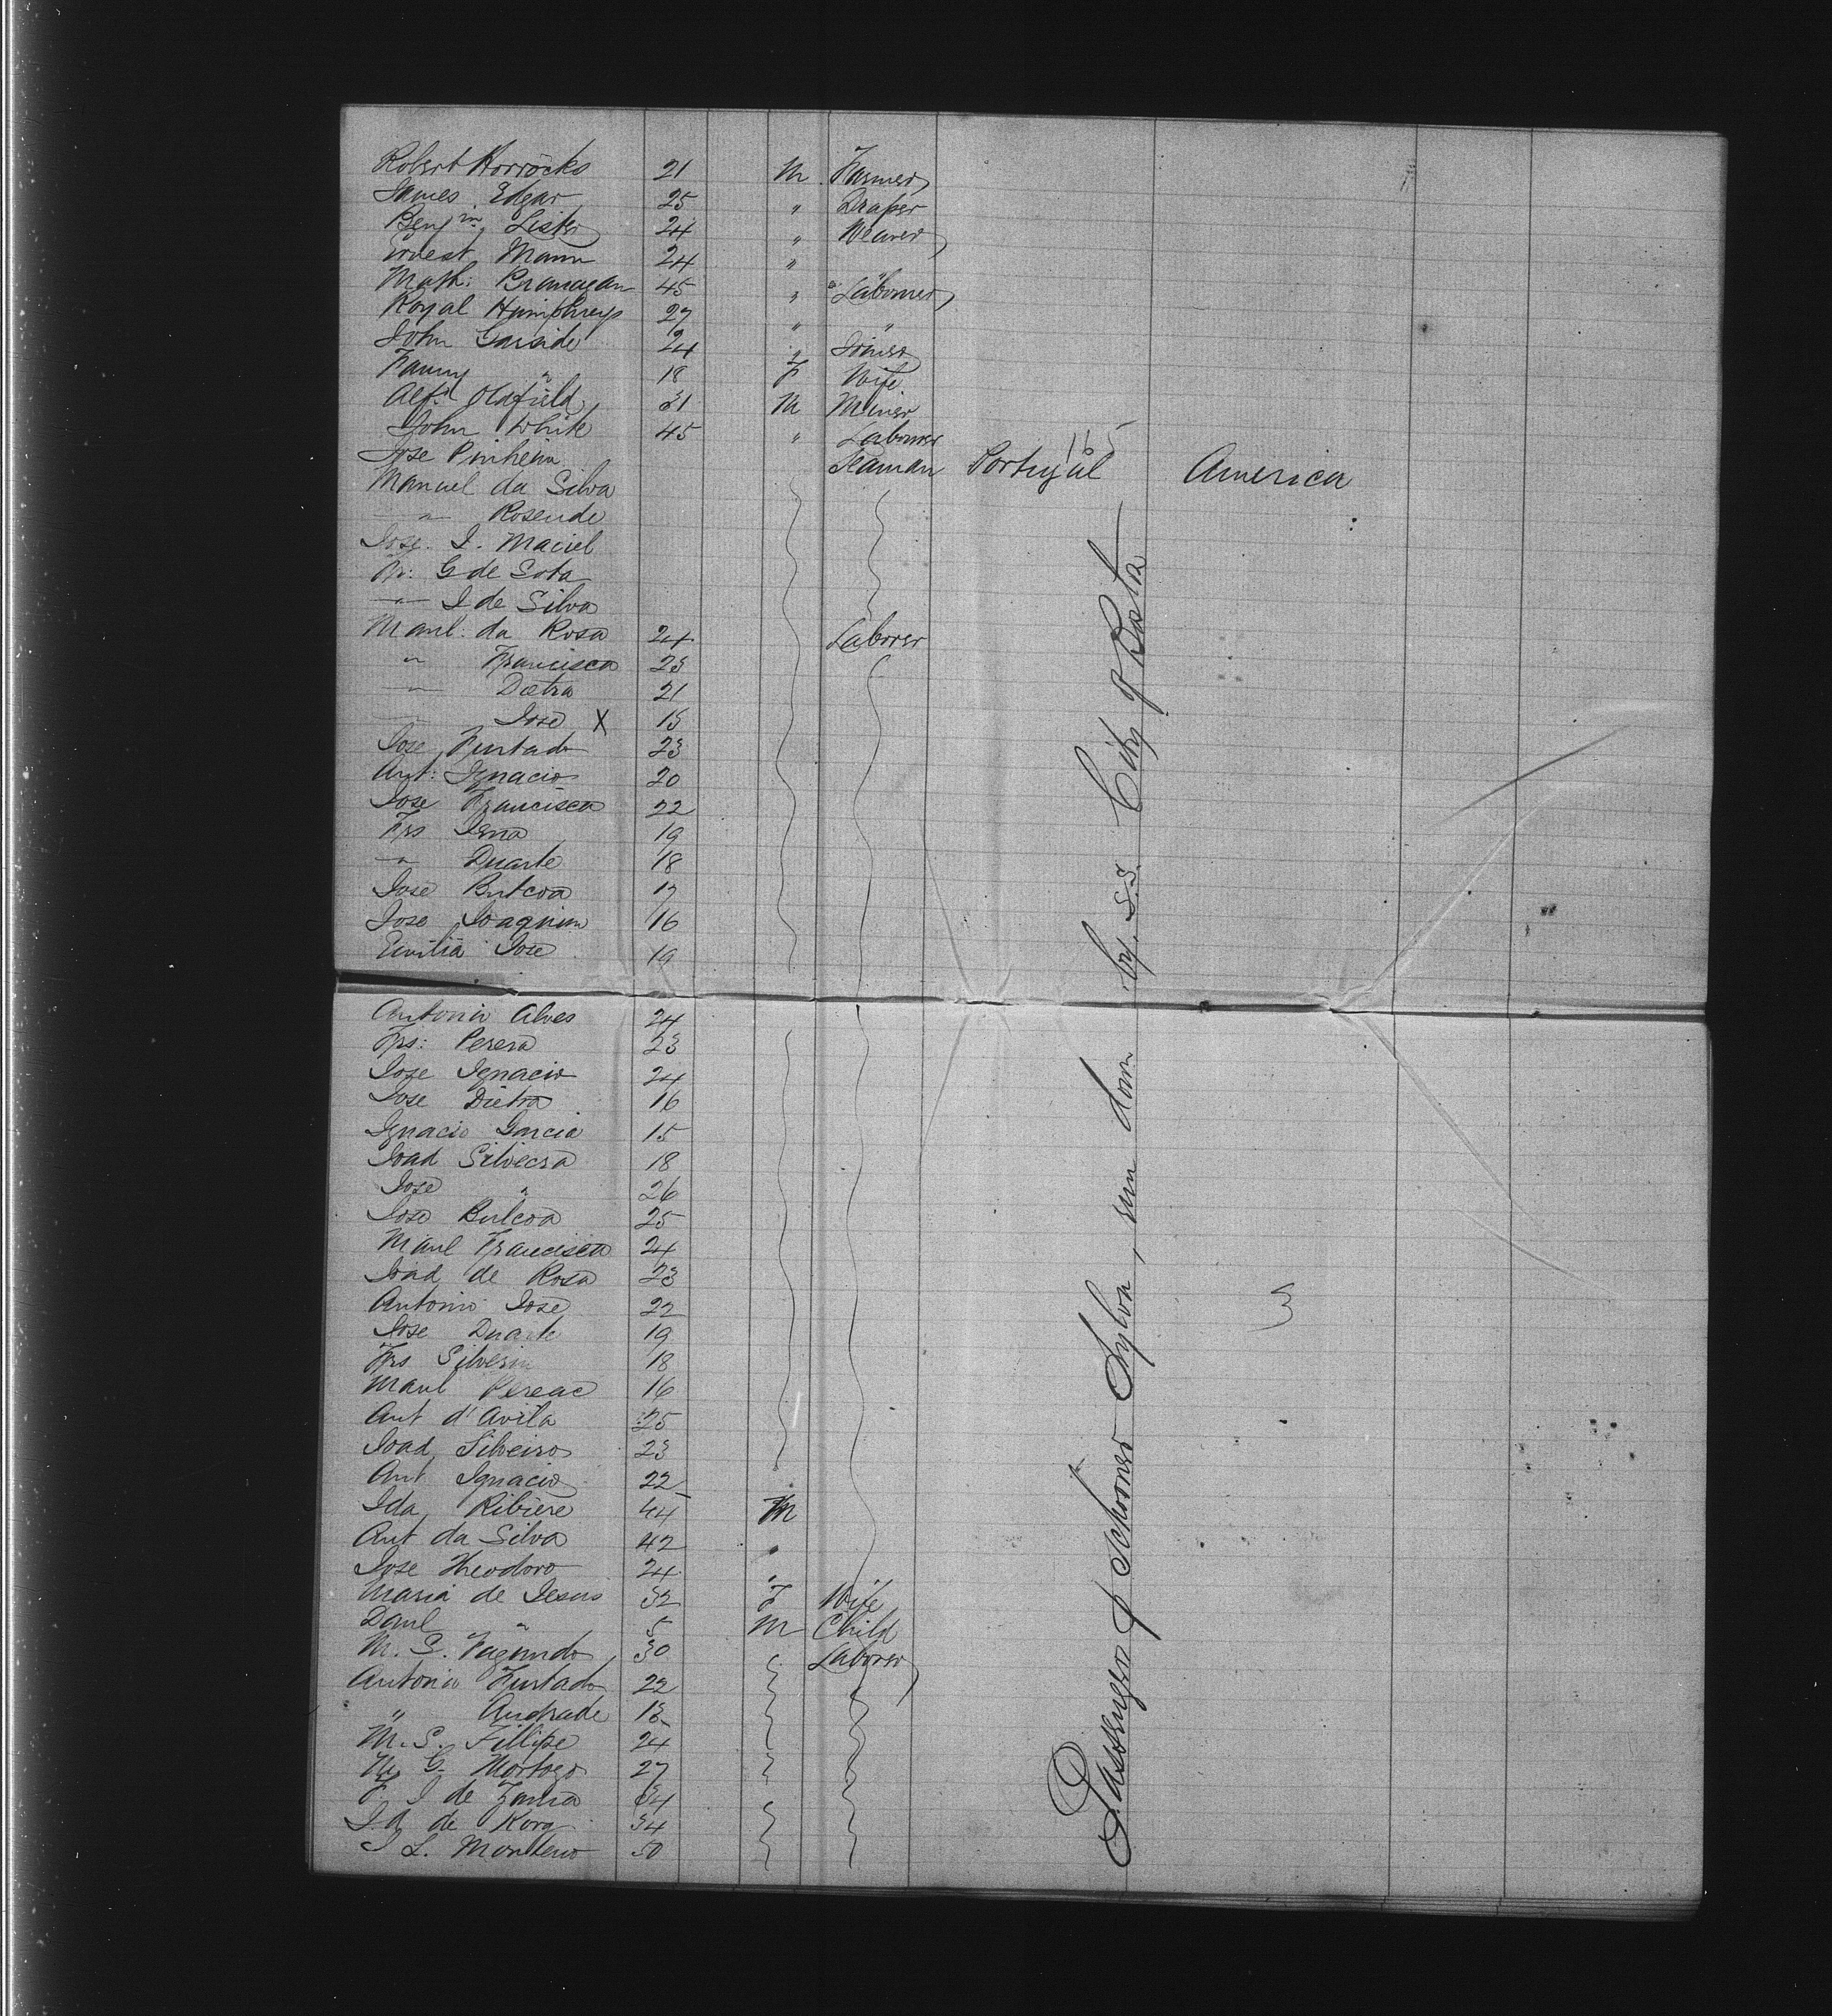 Robert Horrocks 21 M Farmer
James Edgar 25 " Draper
Benjm. Lister 24 " Weaver
Ernest Mann 24 " "
Math: Branagan 45 " Labourer
Royal Humphreys 27 " "
John Garside 24 " Joiner
Fanny " 18 F Wife
Alfd Oldfield 31 M Miner
John White 45 " Labourer
Jose Pinheiro Seaman Portugal America
115
Manuel da Silva
— " — Rosende
Jose. I. Maciel
G de Sota
— " — I de Silva
Manl: da Rosa 24 Laborer
" Francisco 23
— " — Dietra 21
Jose X 15
Jose Furtado 23
Ant: Ignacio 20
Jose Francisco 22
Frs 19
— " — Duarte 18
Jose Butcoa 17
Jose Joaquim 16
Emilia Jose 19
Antonio Alves 24
Frs: Perera 23
Jose Ignacio 24
Jose Dietra 16
Ignacio Garcia 15
Joad Silveira 18
Jose " 26
Jose Bulcoa 25
Manl Francisco 24
Joad de Rosa 23
Antonio Jose 22
Jose Duarte 19
Frs Silveira 18
Manl 16
Ant d'Avila 25
Joad Silveiro 23
Ant. Ignacio 22
Ida Ribiere 44 M
Ant da Silva 42 "
Jose Theodoro 24 "
Maria de Jesus 32 F Wife
Danl " 5 M Child
M. S. Fagundo 30 Laborer
Antonio Furtado 22
" Andrade 13
M. S. Fillipe 24
G. 27
F. I de 34
I. d. de 34
I L. Monteiro 50
Passengers of Schooner Sylva, run down by S.S. City of Rosta
3